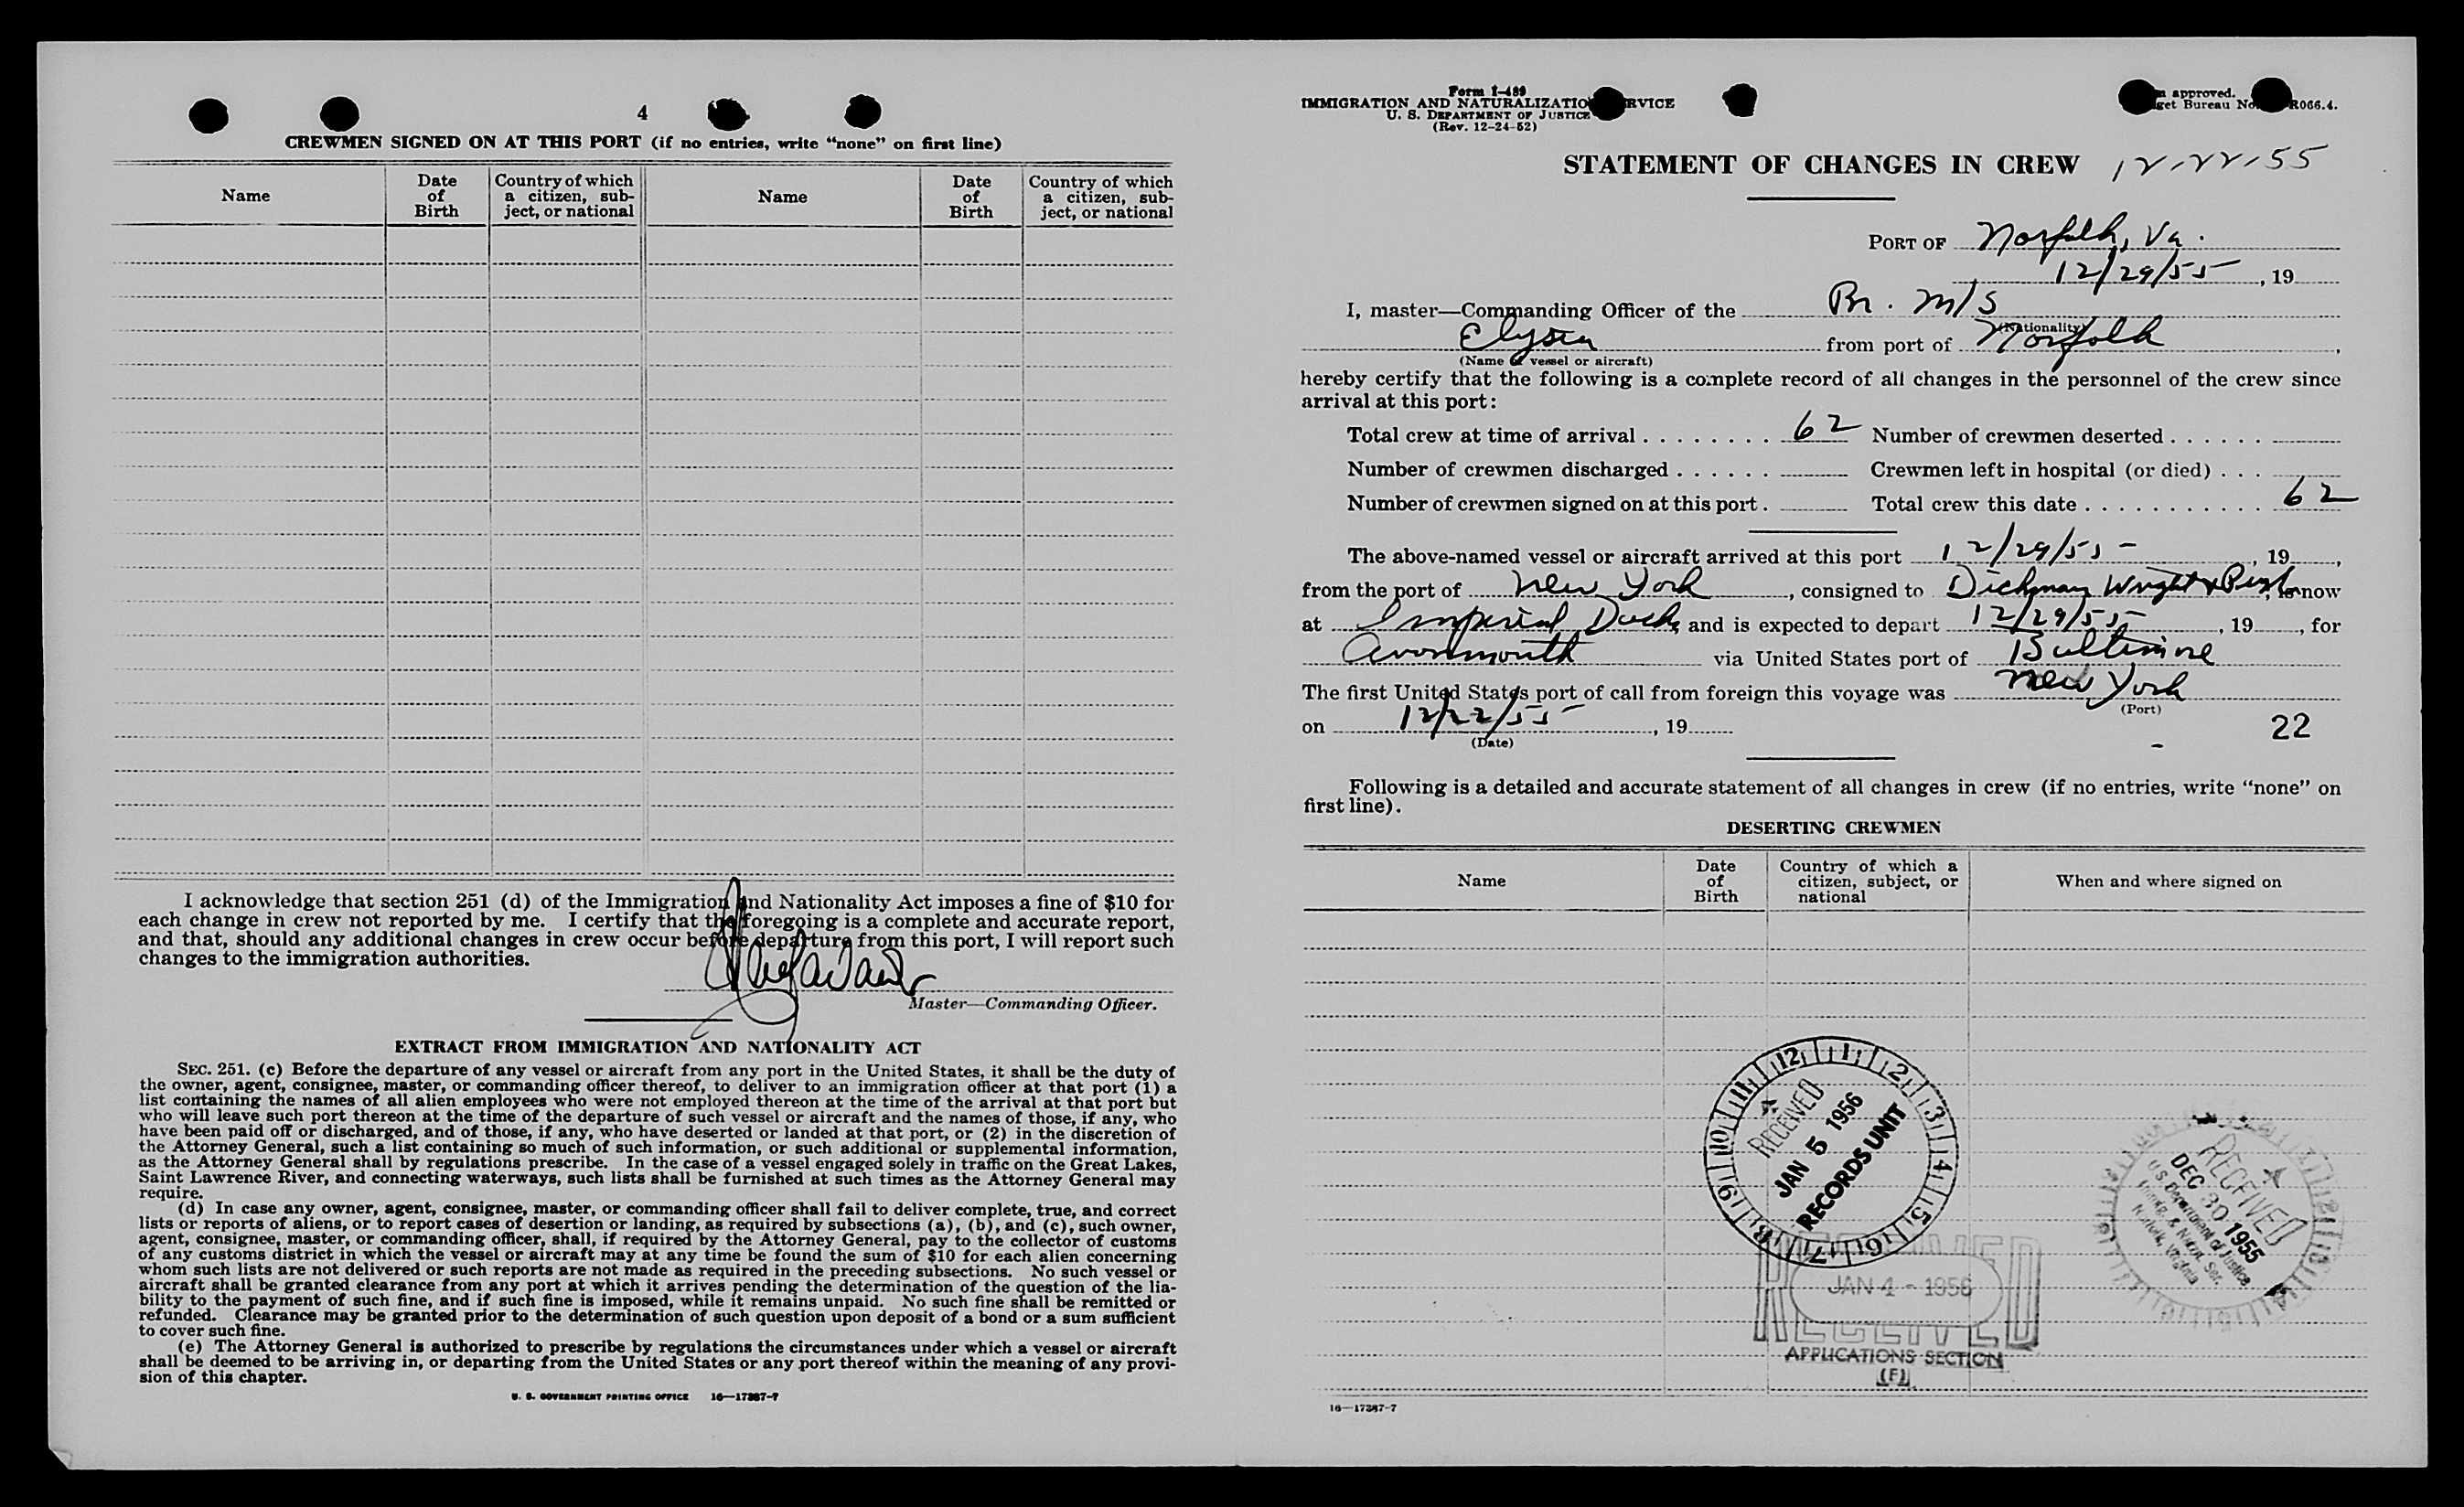 4
CREWMEN SIGNED ON AT THIS PORT (if no entries, write “none” on first line)
Name
Date of Birth
Country of which a citizen, sub-
ject, or national
Name
Date of Birth
Country of which a citizen, sub-
ject, or national
I acknowledge that section 251 (d) of the Immigration and Nationality Act imposes a fine of $10 for
each change in crew not reported by me. I certify that the foregoing is a complete and accurate report,
and that, should any additional changes in crew occur before departure from this port, I will report such
changes to the immigration authorities.
Master—Commanding Officer.
EXTRACT FROM IMMIGRATION AND NATIONALITY ACT
SEC. 251. (c) Before the departure of any vessel or aircraft from any port in the United States, it shall be the duty of
the owner, agent, consignee, master, or commanding officer thereof, to deliver to an immigration officer at that port (1) a
list containing the names of all alien employees who were not employed thereon at the time of the arrival at that port but
who will leave such port thereon at the time of the departure of such vessel or aircraft and the names of those, if any, who
have been paid off or discharged, and of those, if any, who have deserted or landed at that port, or (2) in the discretion of
the Attorney General, such a list containing so much of such information, or such additional or supplemental information,
as the Attorney General shall by regulations prescribe. In the case of a vessel engaged solely in traffic on the Great Lakes,
Saint Lawrence River, and connecting waterways, such lists shall be furnished at such times as the Attorney General may
require.
(d) In case any owner, agent, consignee, master, or commanding officer shall fail to deliver complete, true, and correct
lists or reports of aliens, or to report cases of desertion or landing, as required by subsections (a), (b), and (c), such owner,
agent, consignee, master, or commanding officer, shall, if required by the Attorney General, pay to the collector of customs
of any customs district in which the vessel or aircraft may at any time be found the sum of $10 for each alien concerning
whom such lists are not delivered or such reports are not made as required in the preceding subsections. No such vessel or
aircraft shall be granted clearance from any port at which it arrives pending the determination of the question of the lia-
bility to the payment of such fine, and if such fine is imposed, while it remains unpaid. No such fine shall be remitted or
refunded. Clearance may be granted prior to the determination of such question upon deposit of a bond or a sum sufficient
to cover such fine.
(e) The Attorney General is authorized to prescribe by regulations the circumstances under which a vessel or aircraft
shall be deemed to be arriving in, or departing from the United States or any port thereof within the meaning of any provi-
sion of this chapter.
U. S. GOVERNMENT PRINTING OFFICE 16—17387-7
Form I-489
IMMIGRATION AND NATURALIZATIO RVICE
U. S. DEPARTMENT OF JUSTICE
(Rev. 12-24-52)
approved.
get Bureau No. R066.4.
STATEMENT OF CHANGES IN CREW 12-22-55
PORT OF Norfolk, Va.
12/29/55, 19
I, master—Commanding Officer of the Br. M/S
(Nationality)
Elysia from port of Norfolk,
(Name of vessel or aircraft)
hereby certify that the following is a complete record of all changes in the personnel of the crew since
arrival at this port:
Total crew at time of arrival 62 Number of crewmen deserted
Number of crewmen discharged Crewmen left in hospital (or died)
Number of crewmen signed on at this port. Total crew this date 62
The above-named vessel or aircraft arrived at this port 12/29/55, 19,
from the port of New York, consigned to Dichman Wright & Pugh, is now
at Imperial Docks and is expected to depart 12/29/55, 19, for
Avonmouth via United States port of Baltimore
The first United States port of call from foreign this voyage was New York
(Port)
on 12/22/55, 19
(Date)
22
Following is a detailed and accurate statement of all changes in crew (if no entries, write “none” on
first line).
DESERTING CREWMEN
Name
Date of Birth
Country of which a citizen, subject, or national
When and where signed on
12 1 2 3 4 5 6 7 8 9 10 11
RECEIVED
JAN 5 1956
RECORDS UNIT
RECEIVED
JAN 4 - 1956
RECEIVED
APPLICATIONS SECTION
(F)
RECEIVED
DEC 30 1955
U.S. Department of Justice
Immig. & Natzn. Ser.
Norfolk, Virginia
16—17387-7